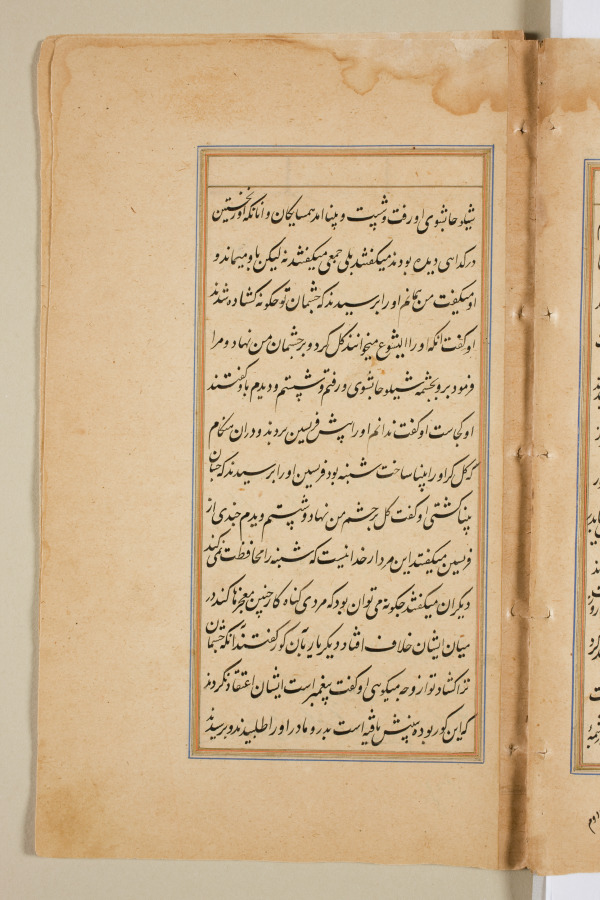 شیلوحا بشوی او رفت و شست و بینا امد همسایکان و انانکه او را نخستین
در کدایی دیده بودند میکفتند بلی جمعی میکفتند نه لیکن باو میماند و
او میکفت من همانم او را پرسیدند که چشمان تو چکونه کشاده شدند
او کفت انکه او را ایشوع میخوانند کل کرد و بر چشمان من نهاد و مرا
فرمود برو بچشمه شیلوحا بشوی و رفتم و شستم و دیدم باو کفتند
او کجاست او کفت ندانم او را پیش فرسین بردند و دران هنکام
که کل کرد او را بینا ساخت شنبه بود فرسین او را پرسیدند که چسان
بینا کشتی او کفت کل بر چشم من نهاد و شستم و دیدم چندی از
فرسین میکفتند این مرد از خدا نیست که شنبه را محافظت نمی کند
دیکران میکفتند چکونه می توان بود که مردی کناه کار چنین معجزها کند در
میان ایشان خلاف افتاد دیکر بار بآن کور کفتند آنکه چشمان
ترا کشاد تو از وی چه میکویی او کفت پیغمبر است ایشان اعتقاد نکردند
که این کور بوده بینش یافته است پدر و مادر او را طلبیدند و پرسیدند